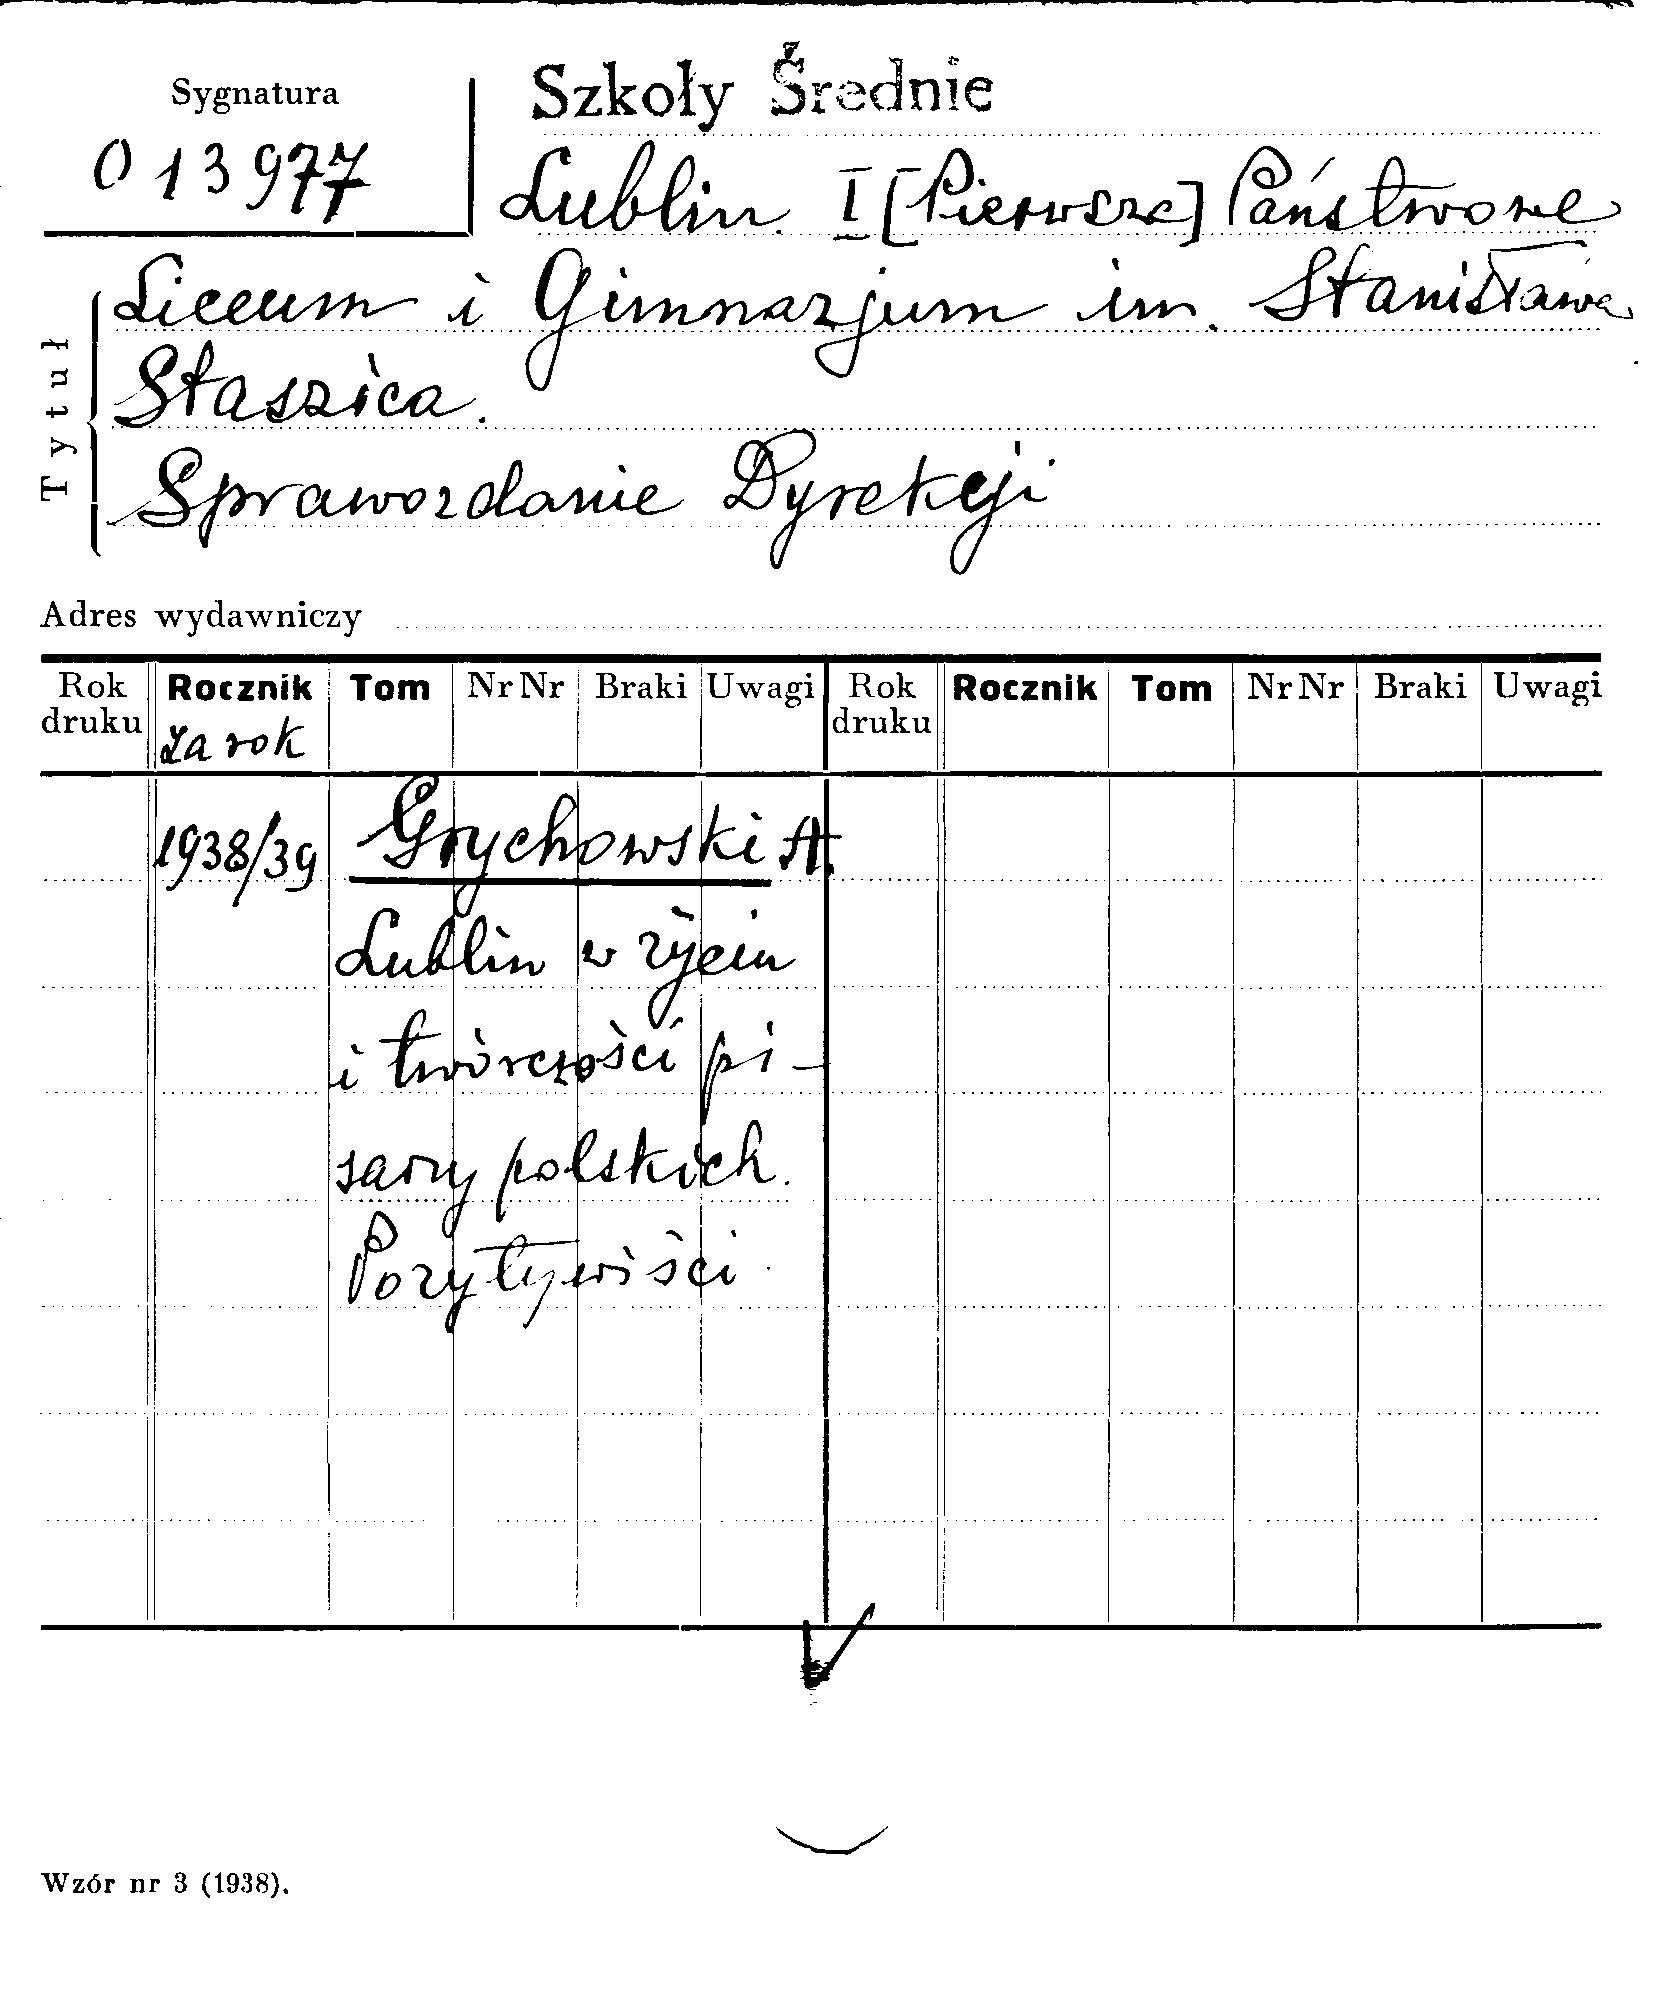 Sygnatura
013977
Szkoły Średnie
Lublin. I [Pierwsze] Państwowe
Liceum i Gimnazjum im. Stanisława
Staszica.
Sprawozdanie Dyrekcji
Tytuł
Adres wydawniczy
Rok druku Rocznik Tom Nr Nr Braki Uwagi Rok druku Rocznik Tom Nr Nr Braki Uwagi
za rok
1938/39 Grychowski A.
Lublin w życiu
i twórczości pi-
sarzy polskich.
Pozytywiści
Wzór nr 3 (1938).